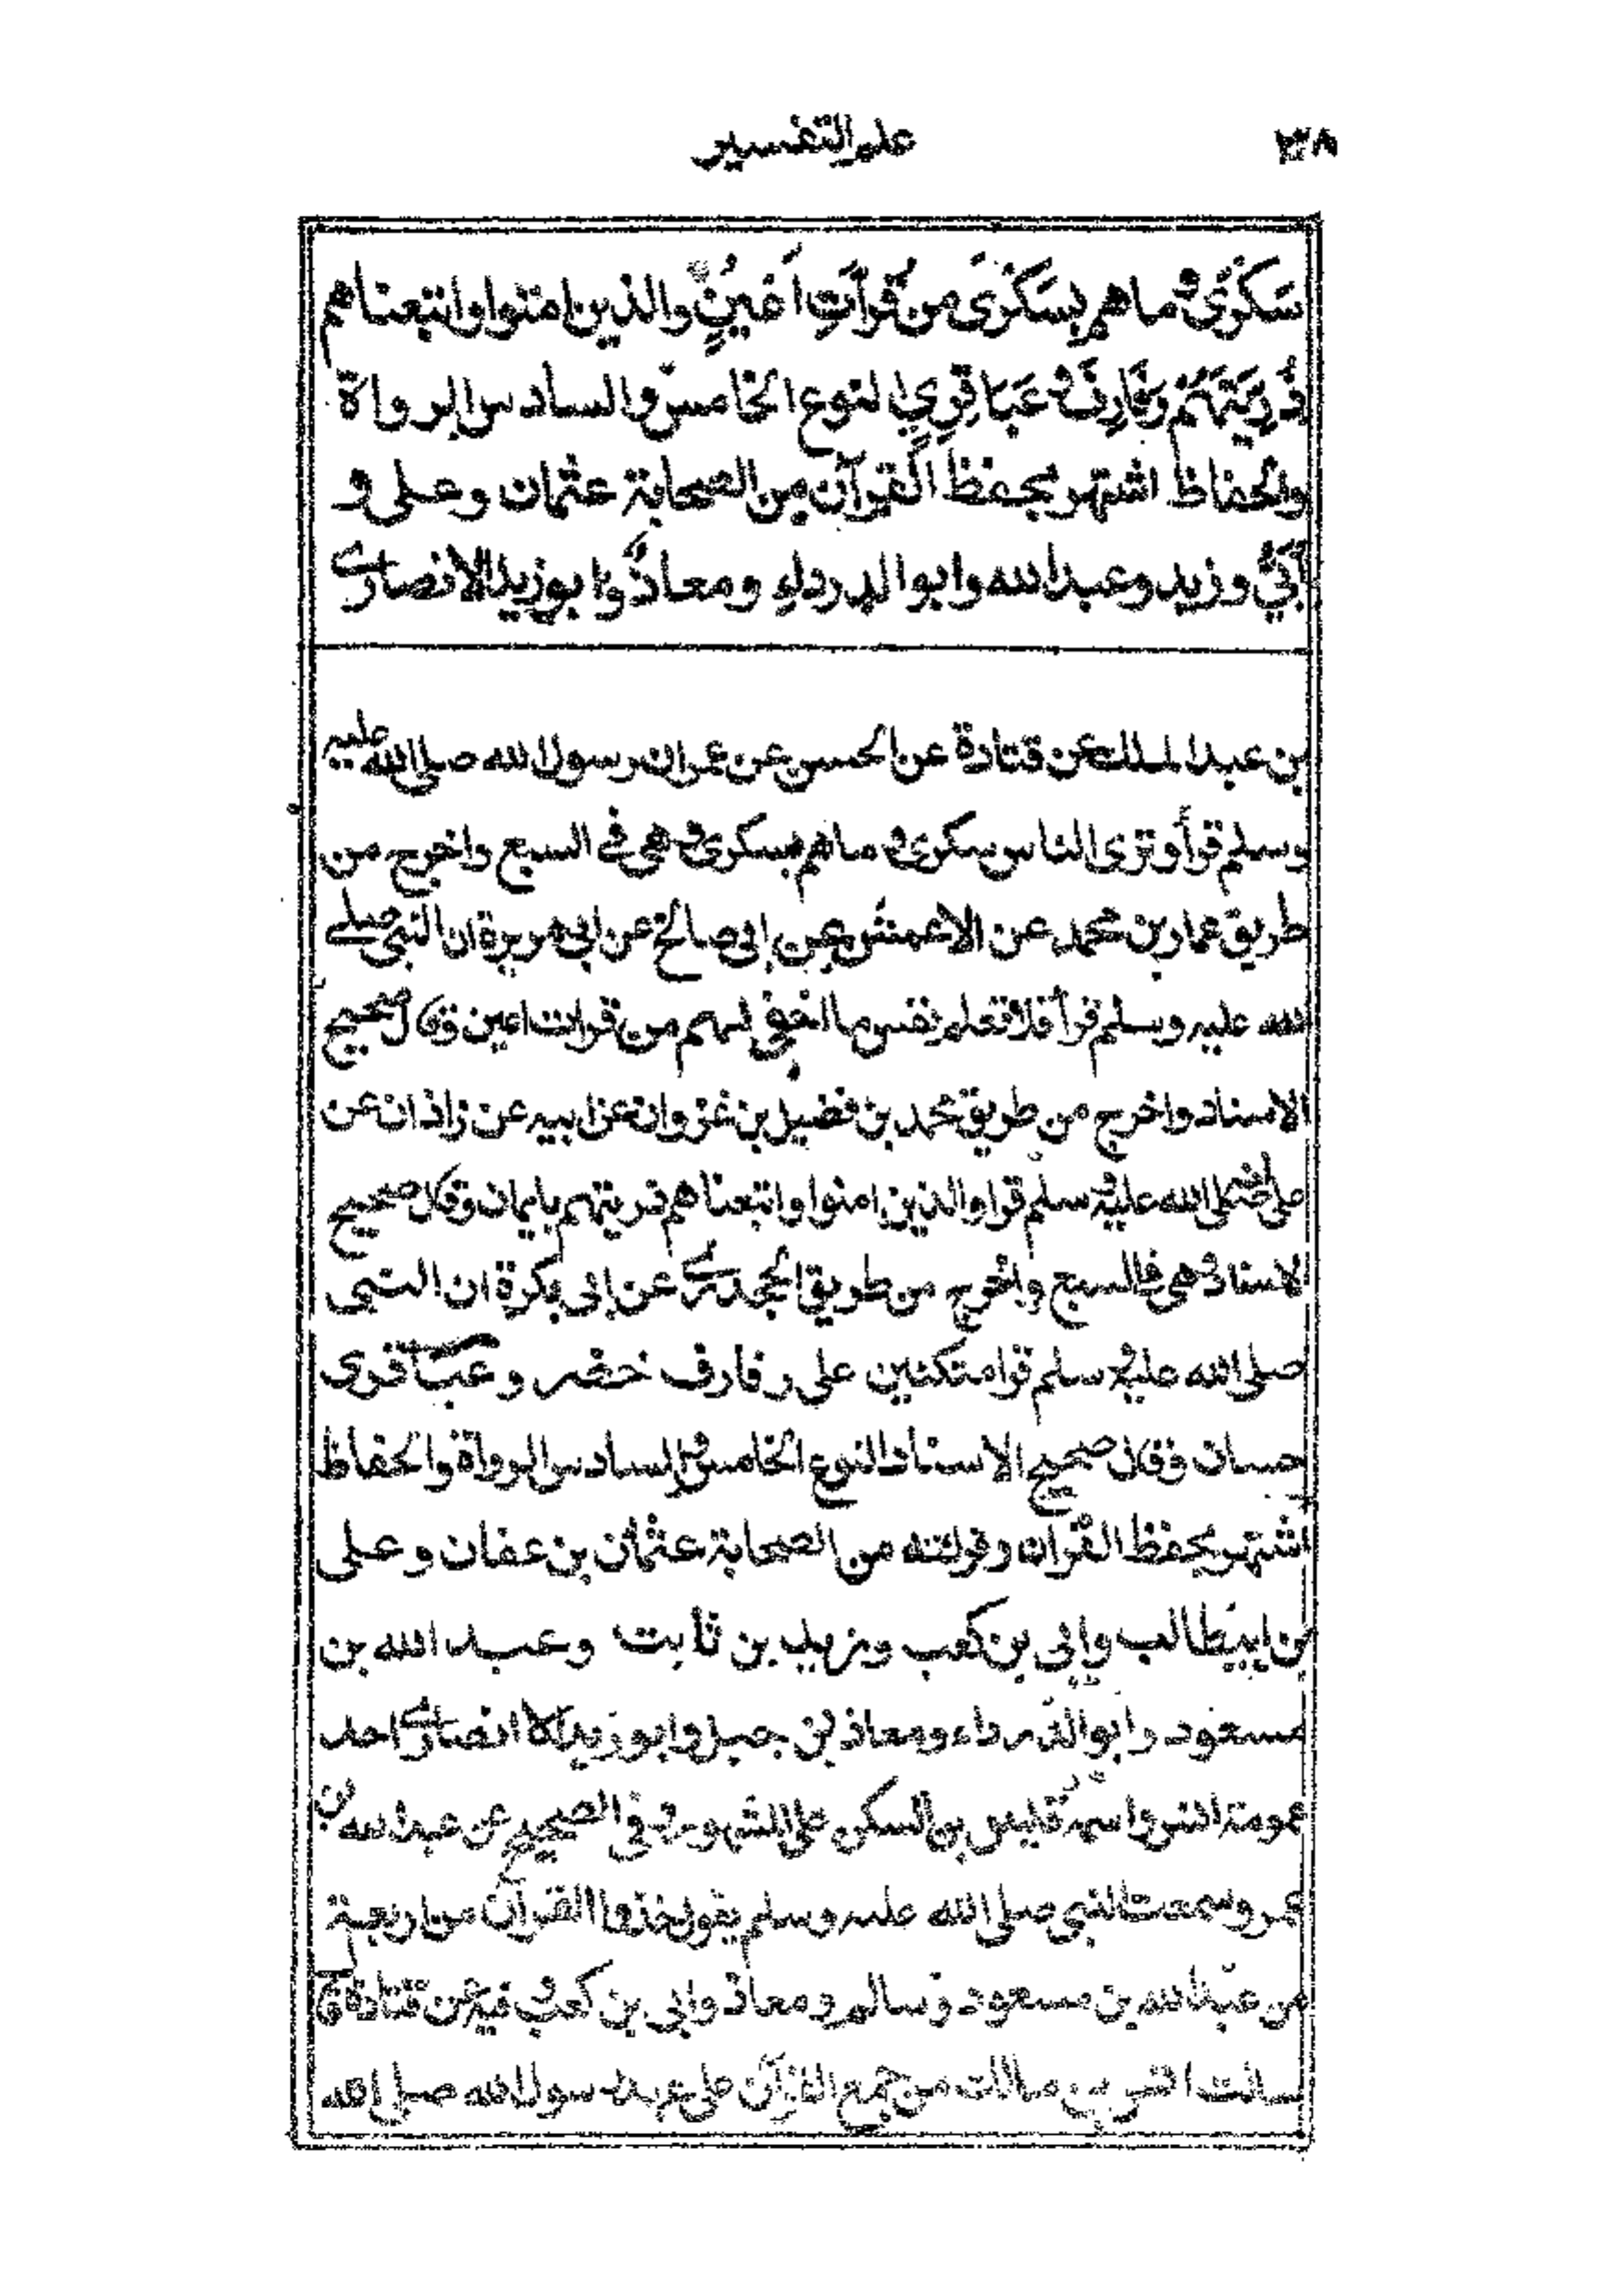 ٣٨
علم التفسير
سَكْرٰى وما هم بِسَكْرٰى من قُرَّاتِ اَعْيُنٍ والذين امنوا واتبعناهم
ذُرِيَّتَهُمْ رَفَارِفَ وعَبَاقِرِيٍ النوع الخامس والسادس الرواة
والحفاظ اشتهر بحفظ القرآن من الصحابة عثمان وعلى و
أُبَيُّ وزيد وعبد الله وابو الدرداء ومعاذ وابو زيد الانصارى
بن عبد الملك عن قتادة عن الحسن عن عمران رسول الله صلى الله عليه
وسلم قرأ وترى الناس سكرى وما هم بسكرى وهى فى السبع واخرج من
طريق عمار بن محمد عن الاعمش عن ابى صالح عن ابى هريرة ان النبى صلى
الله عليه وسلم قرأ فلا تعلم نفس ما اخفى لهم من قرات اعين وقال صحيح
الاسناد واخرج من طريق محمد بن فضيل بن غزوان عن ابيه عن زاذان عن
على صلى الله عليه وسلم قرا والذين امنوا واتبعناهم ذريتهم بايمان وقال صحيح
الاسناد وهى فى السبع واخرج من طريق الجحدرى عن ابى بكرة ان النبى
صلى الله عليه وسلم قرا متكئين على رفارف خضر وعباقرى
حسان وقال صحيح الاسناد النوع الخامس والسادس الرواة والحفاظ
اشتهر بحفظ القران وقرائته من الصحابة عثمان بن عفان وعلى
بن ابيطالب وابى بن كعب وزيد بن ثابت وعبد الله بن
مسعود وابو الدرداء ومعاذ بن جبل وابو زيد الانصارى احد
عمومة انس واسمه قيس بن السكن على المشهور وفى الصحيح عن عبد الله بن
عمر وسمعت النبى صلى الله عليه وسلم يقول خذوا القرآن من اربعة
من عبد الله بن مسعود وسالم ومعاذ وابى بن كعب وفيه عن قتادة قال
سالت انس بن مالك من جمع القرآن على عهد رسول الله صلى الله